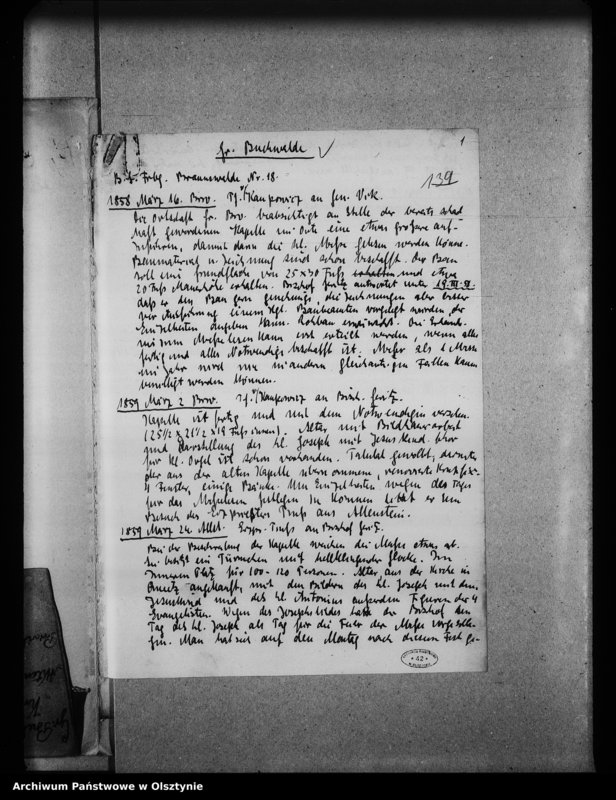 1
Gr. Buchwalde
139
B. A. Frbg. Braunswalde Nr. 18.
1858 März 16. Brw. Pf. Kanpowicz an Gen. Vik.
Die Ortschaft Gr. Bw. beabsichtigt an Stelle der bereits schad
haft gewordenen Kapelle im Orte eine etwas größere auf-
zuführen, damit dann die hl. Messe gelesen werden könne.
Baumaterial u. Zeichnung sind schon beschafft. Der Bau
soll eine Grundfläche von 25 x 30 Fuß erhalten und etwa
20 Fuß Mannhöhe erhalten. Bischof Geritz antwortet unter 19.III.58,
daß er den Bau gern genehmige, die Zeichnungen aber erst
vor Ausführung einem kgl. Baubeamten vorgelegt werden, der
Einzelheiten angeben kann. Die Erlaub-
nis zum Messelesen kann erst erteilt werden, wenn alles
fertig und alles Notwendige beschafft ist. Mehr als 1 Messe
im Jahr wird wie in andern gleichartigen Fällen kaum
bewilligt werden können.
1859 März 2 Brw. Pf. Kanpowicz an Bisch. Geritz.
Kapelle ist fertig und mit dem Notwendigen versehen.
(25 1/2 x 21 1/2 x 19 Fuß innen). Altar mit Bildhauerarbeit
und Darstellung des hl. Joseph mit Jesuskind. Chor
für kl. Orgel ist schon vorhanden.
der aus der alten Kapelle übernommen, renovierte Kruzifix.
4 Fenster, einige Bänke. Um Einzelheiten wegen des Tages
für das Messelesen festlegen zu können bittet er um
Besuch des Erzpriesters Pruß aus Allenstein.
1859 März 24. Allst. Erzpr. Pruß an Bischof Geritz.
Bei der Beschreibung der Kapelle weichen die Maße etwas ab.
Sie besitzt ein Türmchen mit hellklingender Glocke. Im
Inneren Platz für 100-120 Personen. Altar, aus der Kirche in
angekauft, mit den Bildern des hl. Joseph mit dem
Jesuskind und des hl. Antonius außerdem Figuren der 4
Evangelisten. Wegen des Josephsbildes hatte der Bischof den
Tag des hl. Joseph als Tag für die Feier der Messe vorgeschla-
gen. Man hat sich auf den Montag nach diesem Fest ge-
42
Archiwum Państwowe w Olsztynie